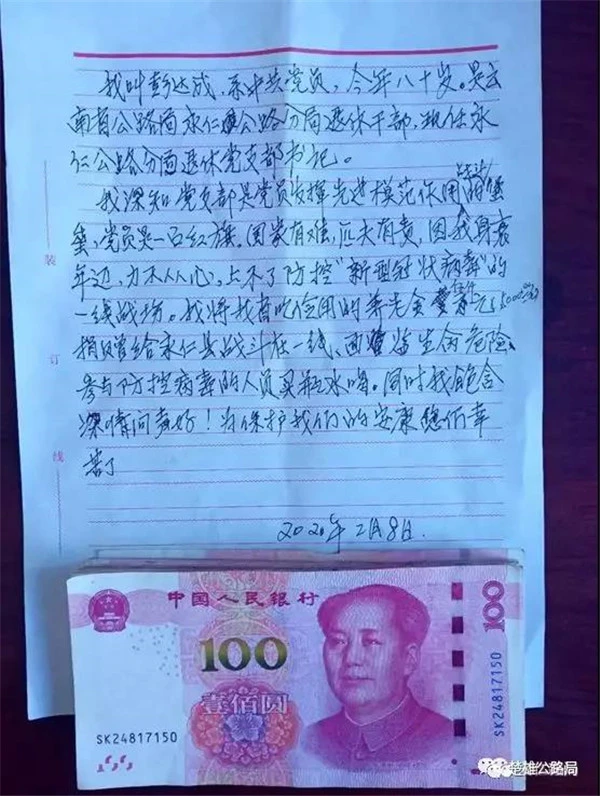 我叫彭达成,系中共党员,今年八十岁。是云
南省公路局永仁公路分局退休干部,现任永
仁公路分局退休党支部书记。
我深知党支部是党员发挥先进模范作用战斗的堡
垒,党员是一面红旗,国家有难,匹夫有责,因我身衰
年迈,力不从心,上不了防控“新型冠状病毒”的
一线战场。我将我省吃俭用的养老金 伍仟元 5000.00
捐赠给永仁县战斗在一线,面临着生命危险、
参与防控病毒的人员买瓶水喝。同时我饱含
深情问声好!为保护我们的安康您们辛
苦了
2020年2月8日.
装
订
线
中国人民银行
100
壹佰圆
100
SK24817150
SK24817150
楚雄公路局